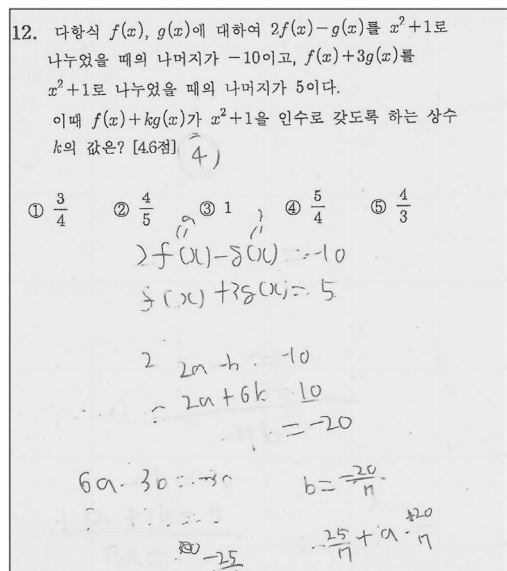 12. 다항식 f(x), g(x)에 대하여 2f(x)-g(x)를 x²+1로
나누었을 때의 나머지가 -10이고, f(x)+3g(x)를
x²+1로 나누었을 때의 나머지가 5이다.
이때 f(x)+kg(x)가 x²+1을 인수로 갖도록 하는 상수
k의 값은? [4.6점]
4)
① 3/4 ② 4/5 ③ 1 ④ 5/4 ⑤ 4/3
2f(x)-g(x)=-10
f(x)+3g(x)=5
2a-b=-10
2a+6b 10
=-20
6a-3b=-3
b=-20/7
-25/7+a
-25